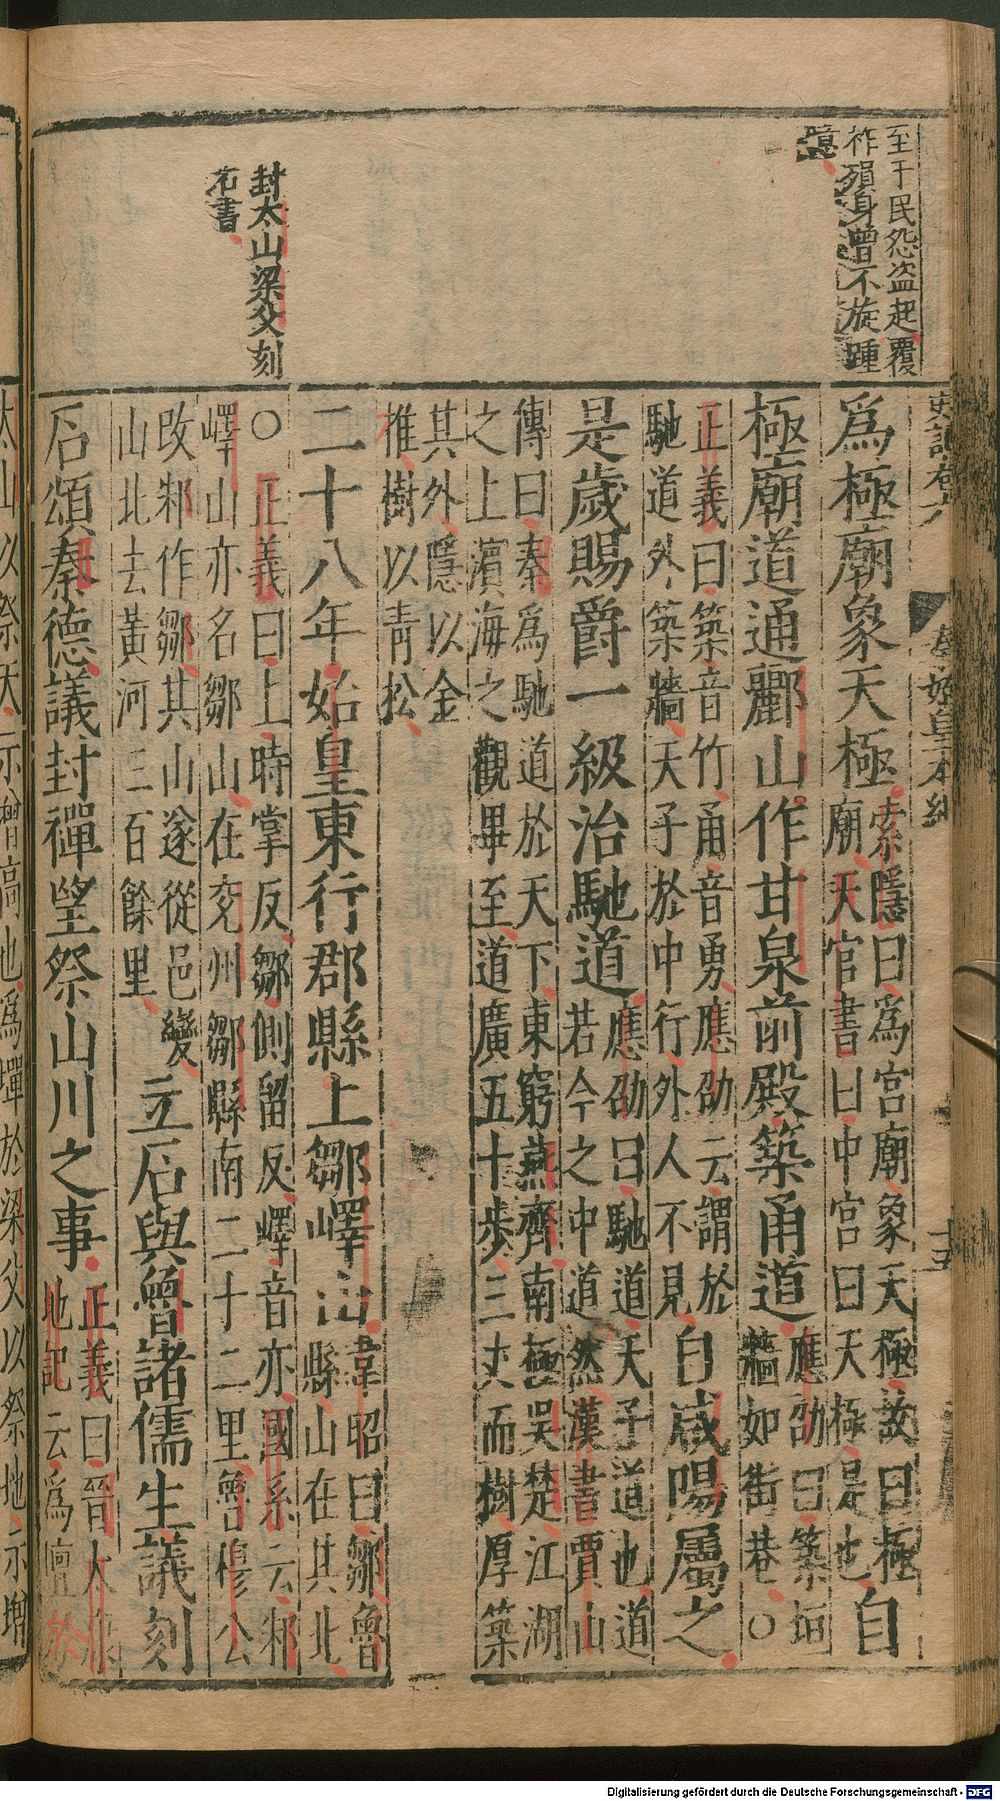 史記卷六　秦始皇本紀　十五
至于民怨盜起覆
祚殞身曾不旋踵
意
封太山梁父刻
石書
爲極廟象天極
索隱曰爲宮廟象天極故曰極
廟天官書曰中宮曰天極是也
自
極廟道通酈山作甘泉前殿築甬道
應劭曰築垣
牆如街巷〇
正義曰築音竹甬音勇應劭云謂於
馳道外築牆天子於中行外人不見
自咸陽屬之
是歲賜爵一級治馳道
應劭曰馳道天子道也道
若今之中道然漢書賈山
傳曰秦爲馳道於天下東窮燕齊南極吳楚江湖
之上濱海之觀畢至道廣五十步三丈而樹厚築
其外隱以金
椎樹以靑松
二十八年始皇東行郡縣上鄒嶧山
韋昭曰鄒魯
縣山在其北
〇正義曰上時掌反鄒側留反嶧音亦國系云邾
嶧山亦名鄒山在兗州鄒縣南二十二里魯穆公
改邾作鄒其山遂從邑變
山北去黃河三百餘里
立石與魯諸儒生議刻
石頌秦德議封禪望祭山川之事
正義曰晉太康
地記云爲壇於
太山以祭天示增高也爲墠於梁父以祭地示增
Digitalisierung gefördert durch die Deutsche Forschungsgemeinschaft - DFG